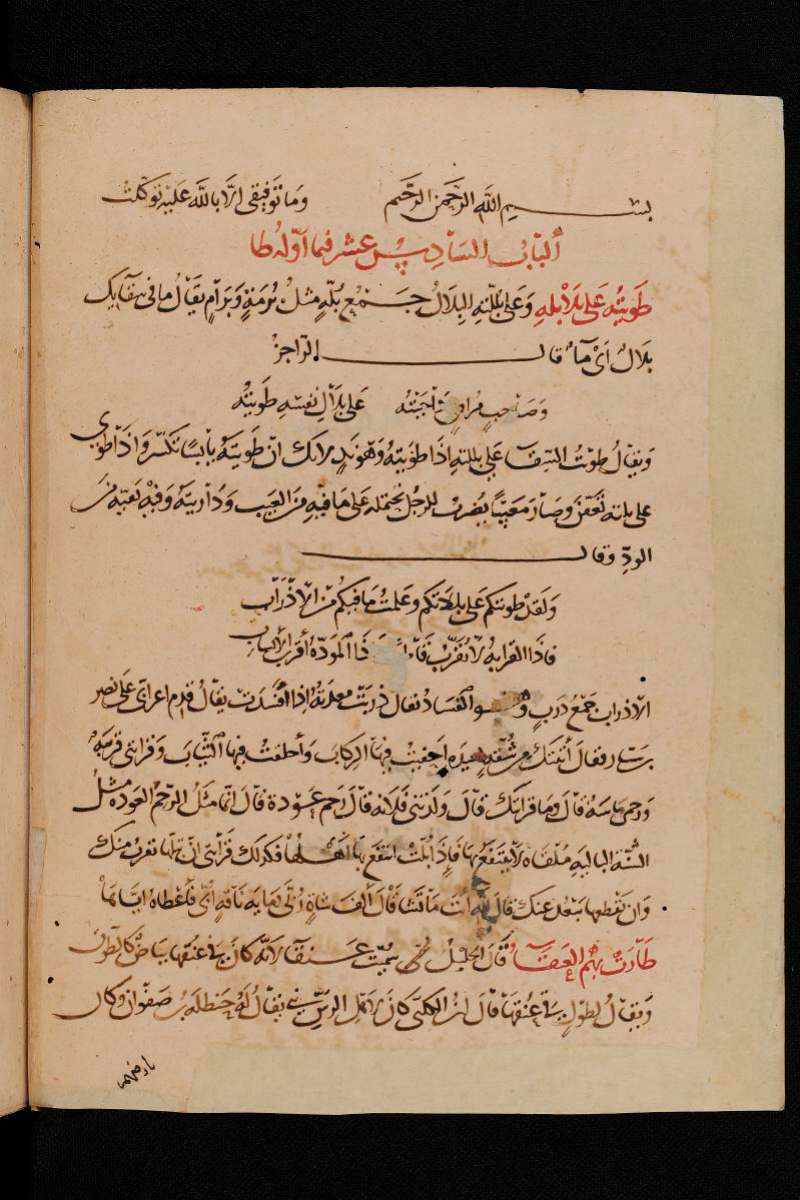 بسم الله الرحمن الرحيم وما توفيقي الا بالله عليه توكلت
ألباب السادس عشر فيما أوله طا
طَوَيتُه عَلى بلاله وَعَلى بُللته البِلَالُ جَمْع بُلّهٍ مثلُ بُرمَةٍ وَبرَامٍ يقَالُ ما في سقَايك
بلَالٌ اَىْ مآءٌ قال الراجز
وَصَاحبٍ مُرامِقٍ دَاجَيتُه عَلى بلَالِ نفسه طَوَيتُه
وَيقالُ طويتُ السِقَآ عَلى بللته اذَا طَوَيتَهُ وَهوَ نَدٍ لانك ان طَوَيتَهُ يَابسًا تكسّر وَاذَا طوى
على بلته تَعَفّنَ وصَارَ مَعيبًا يُضرَب للرجُل تحتمله عَلى مَا فيه مِنَ العَيب وَدَاريتَهُ وَفيه بَقيّه مِنَ
الودّ وقال
وَلَقد طويتكم عَلى بللاتكم وعَلمتُ مَا فيكُم منَ الاذرَاب
فاذَا القرابه لا تُقرّب قَاطعًا وَاذَا المَودّه أقرَبُ الأنسَاب
الاذرابَ جَمْعُ ذَرَبٍ وَهُو الفَسَادُ يقال ذربَت معدتهُ اذَا افسَدت يقالُ قدم اعرَابى عَلى نصر
بن سيار فقالَ أتيتكَ من شُقّهٍ بعيدَه اَحفيتُ فيهَا الركابَ وَأخلقتُ فيها الثيابَ وَقرابَتى قريبَهٌ
وَرحمى مَاسّهٌ قالَ وما قرابَتك قالَ وَلدَتنى فلَانَه قَالَ رَحم عَوْدة قالَ انما مثَلُ الرّحم العَودَه مثلُ
الشنّه الباليَه مُلقَاه لَا يُنتَفَعُ بهَا فَاِذَا بُلّت انتفَع بهَا اَهلُها فكذلك قَرَابتى ان تبلّها تقرب منكَ
وَان تقطعها تبعُد عَنك قالَ لله أنتَ مَا تشَا قَالَ ألفَ شاةٍ رُبّى وَمايَه نَاقه أبّى فَاعْطَاهُ ايَاهَا
طَارَتْ بهُم العَنقَآء قَالَ الخَليلُ سُميّت عَنقَآ لانه كانَ في عُنُقها بيَاضٌ كالطَوق
وَيقالُ لطول في عُنُقهَا قالَ ابنُ الكلبى كانَ لاهل الرسّ نبى يقَالُ لهُ حَنظلَه بن صَفوان وكان
بارضهم